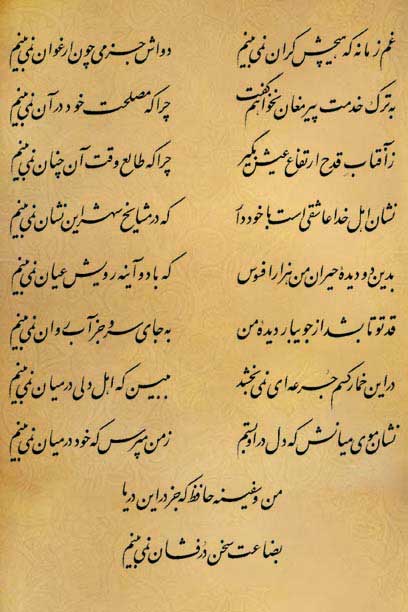 غم زمانه که هیچش کران نمی‌بینم دواش جز می چون ارغوان نمی‌بینم
به ترک خدمت پیر مغان نخواهم گفت چرا که مصلحت خود در آن نمی‌بینم
ز آفتاب قدح ارتفاع عیش بگیر چرا که طالع وقت آن چنان نمی‌بینم
نشان اهل خدا عاشقی است با خود دار که در مشایخ شهر این نشان نمی‌بینم
بدین دو دیده حیران من هزار افسوس که با دو آینه رویش عیان نمی‌بینم
قد تو تا بشد از جویبار دیده من به جای سرو جز آب روان نمی‌بینم
در این خمار کسم جرعه‌ای نمی‌بخشد ببین که اهل دلی در میان نمی‌بینم
نشان موی میانش که دل در او بستم ز من مپرس که خود در میان نمی‌بینم
من و سفینه حافظ که جز در این دریا
بضاعت سخن درفشان نمی‌بینم